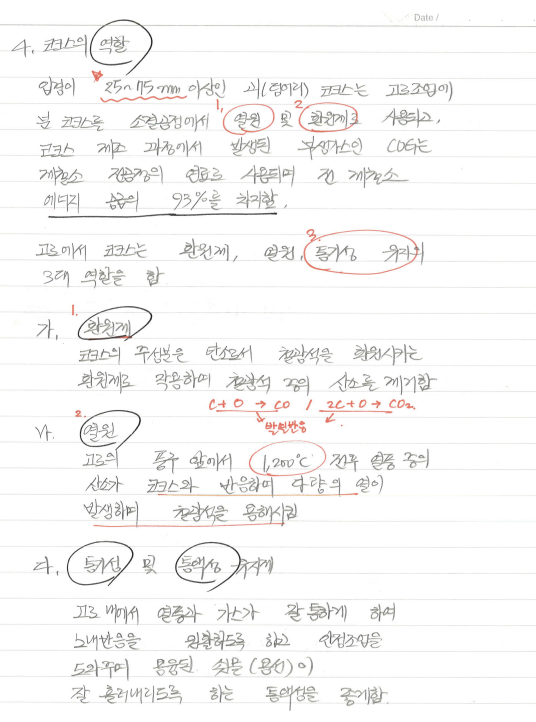 Date /
4. 코크스의 역할
입경이 25~75mm 이상인 괴(덩어리) 코크스는 고로조업에
분 코크스를 소결공정에서 1. 열원 및 2. 환원제로 사용되고,
코크스 제조 과정에서 발생된 부생가스인 COG는
제철소 전공장의 연료로 사용되며 전 제철소
에너지 공급의 93%를 차지함.
고로에서 코크스는 환원제, 열원, 3. 통기성 유지의
3대 역할을 함
1.
가. 환원제
코크스의 주성분은 탄소로서 철광석을 환원시키는
환원제로 작용하며 철광석 중의 산소를 제거함
C+O → CO / 2C+O → CO2.
발열반응
2.
나. 열원
고로의 풍구 앞에서 1,200℃ 전후 열풍 중의
산소가 코크스와 반응하여 다량의 열이
발생하며 철광석을 용해시킴
다. 통기성 및 통액성 유지제
고로 내에서 열풍과 가스가 잘 통하게 하여
노내반응을 원활하도록 하고 안정조업을
도와주며 용융된 쇳물(용선)이
잘 흘러내리도록 하는 통액성을 좋게함.